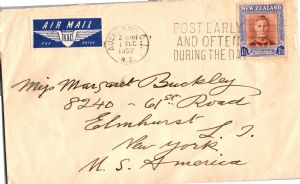 AIR MAIL
PAR AVION
AUCKLAND C.1
1 DEC
1952
N.Z.
POST EARLY
AND OFTEN
DURING THE DAY
NEW ZEALAND
Miss Margaret Buckley
8240 - 61st Road
Elmhurst L. I.
New York
U. S. America